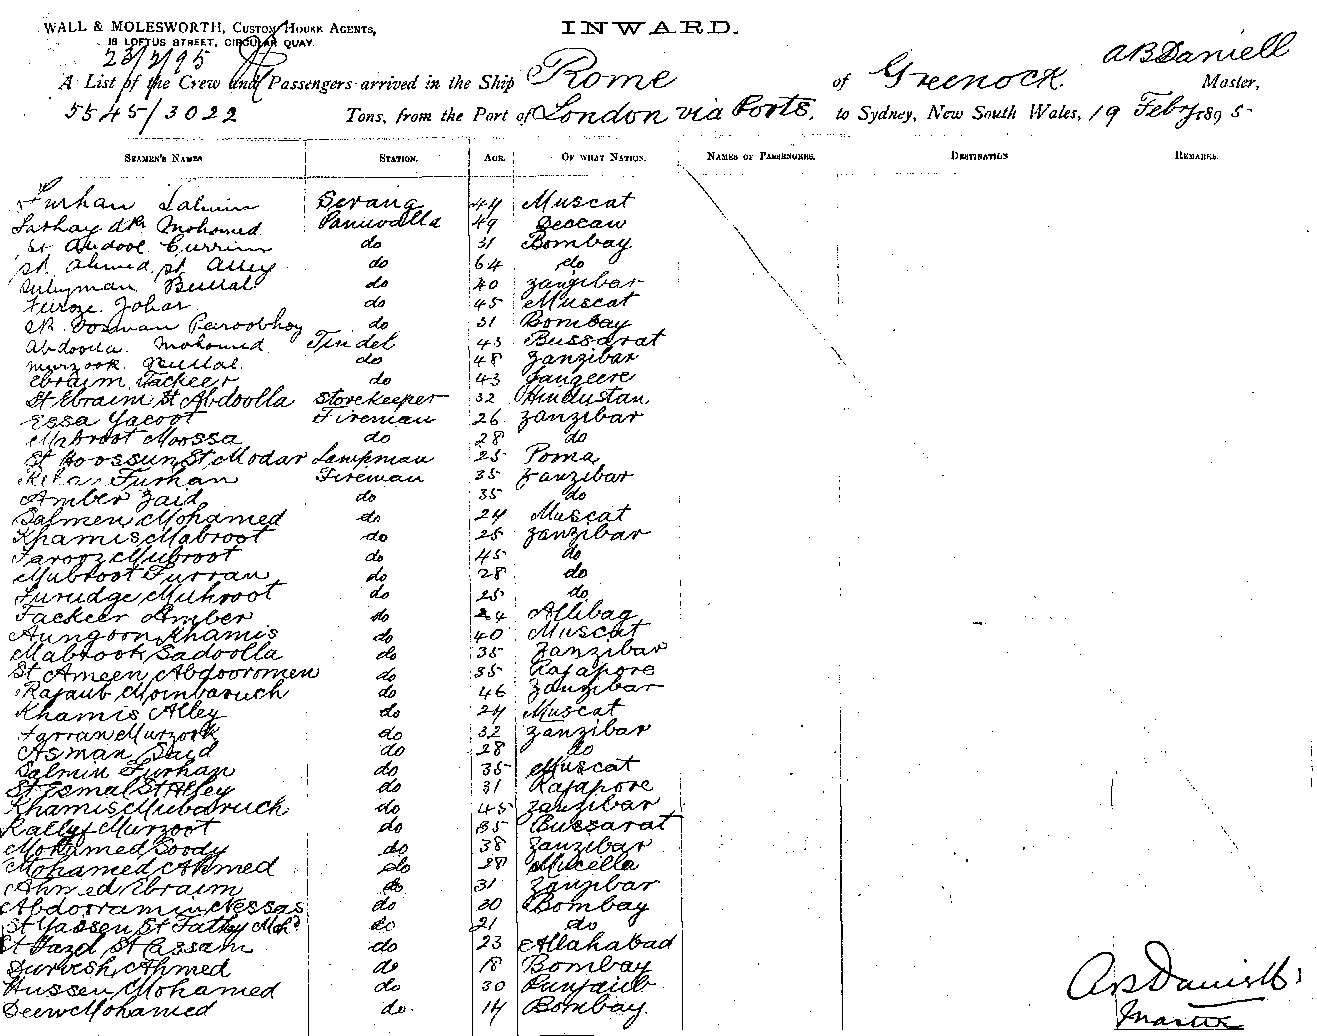 WALL & MOLESWORTH, CUSTOM HOUSE AGENTS,
18 LOFTUS STREET, CIRCULAR QUAY.
INWARD.
23/2/95
A B Daniell
A List of the Crew and Passengers arrived in the Ship Rome of Greenock Master,
5545/3022 Tons, from the Port of London via Ports, to Sydney, New South Wales, 19 Feby 1895
SEAMEN'S NAMES STATION. AGE. OF WHAT NATION. NAMES OF PASSENGERS. DESTINATION REMARKS.
Furhan Salmin Serang 44 Muscat
Mohomed Paniwalla 49 Deccan
St Abdool Currim do 31 Bombay
Sk. Ahmed Sk. Alley do 64 do
Suleyman Bullal do 40 Zanzibar
Furoze Johar do 45 Muscat
Sk. Peroobhoy do 31 Bombay
Abdoola Mohomed Tindel 43 Bussarat
Murzook Bullal do 48 Zanzibar
Ebraim Fackeer do 43 Jangeere
St Ebraim St Abdoolla Storekeeper 32 Hindustan
Essa Yacoot Fireman 26 Zanzibar
Mabroot Moossa do 28 do
St Hoossun St Modar Lampman 25 Poona
Furhan Fireman 35 Zanzibar
Amber Zaid do 35 do
Salmen Mohamed do 24 Muscat
Khamis Mabroot do 25 Zanzibar
Farooz Mubroot do 45 do
Mubroot Furran do 28 do
Furudge Muhroot do 25 do
Fackeer Amber do 24 Allibag
Aungoor Khamis do 40 Muscat
Mabrook Sadoolla do 35 Zanzibar
St Ameen Abdooromen do 35 Rajapore
Rajaub Mombaruch do 46 Zanzibar
Khamis Alley do 24 Muscat
Farran Murzook do 32 Zanzibar
Asman Said do 28 do
Salmin Furhan do 35 Muscat
St Esmal St Alley do 31 Rajapore
Khamis Mubaruch do 45 Zanzibar
Kally Murzoot do 35 Bussarat
Mohamed Goody do 38 Zanzibar
Mohamed Ahmed do 28 Mucella
Ahmed Ebraim do 31 Zanzibar
Abdorramin Nessas do 30 Bombay
St Yassen St Fathy Mhd do 21 do
St Fazel St Cassam do 23 Allahabad
Durvesh Ahmed do 18 Bombay
Hussen Mohamed do 30 Punjaub
Deew Mohamed do. 14 Bombay.
A B Daniell
Master